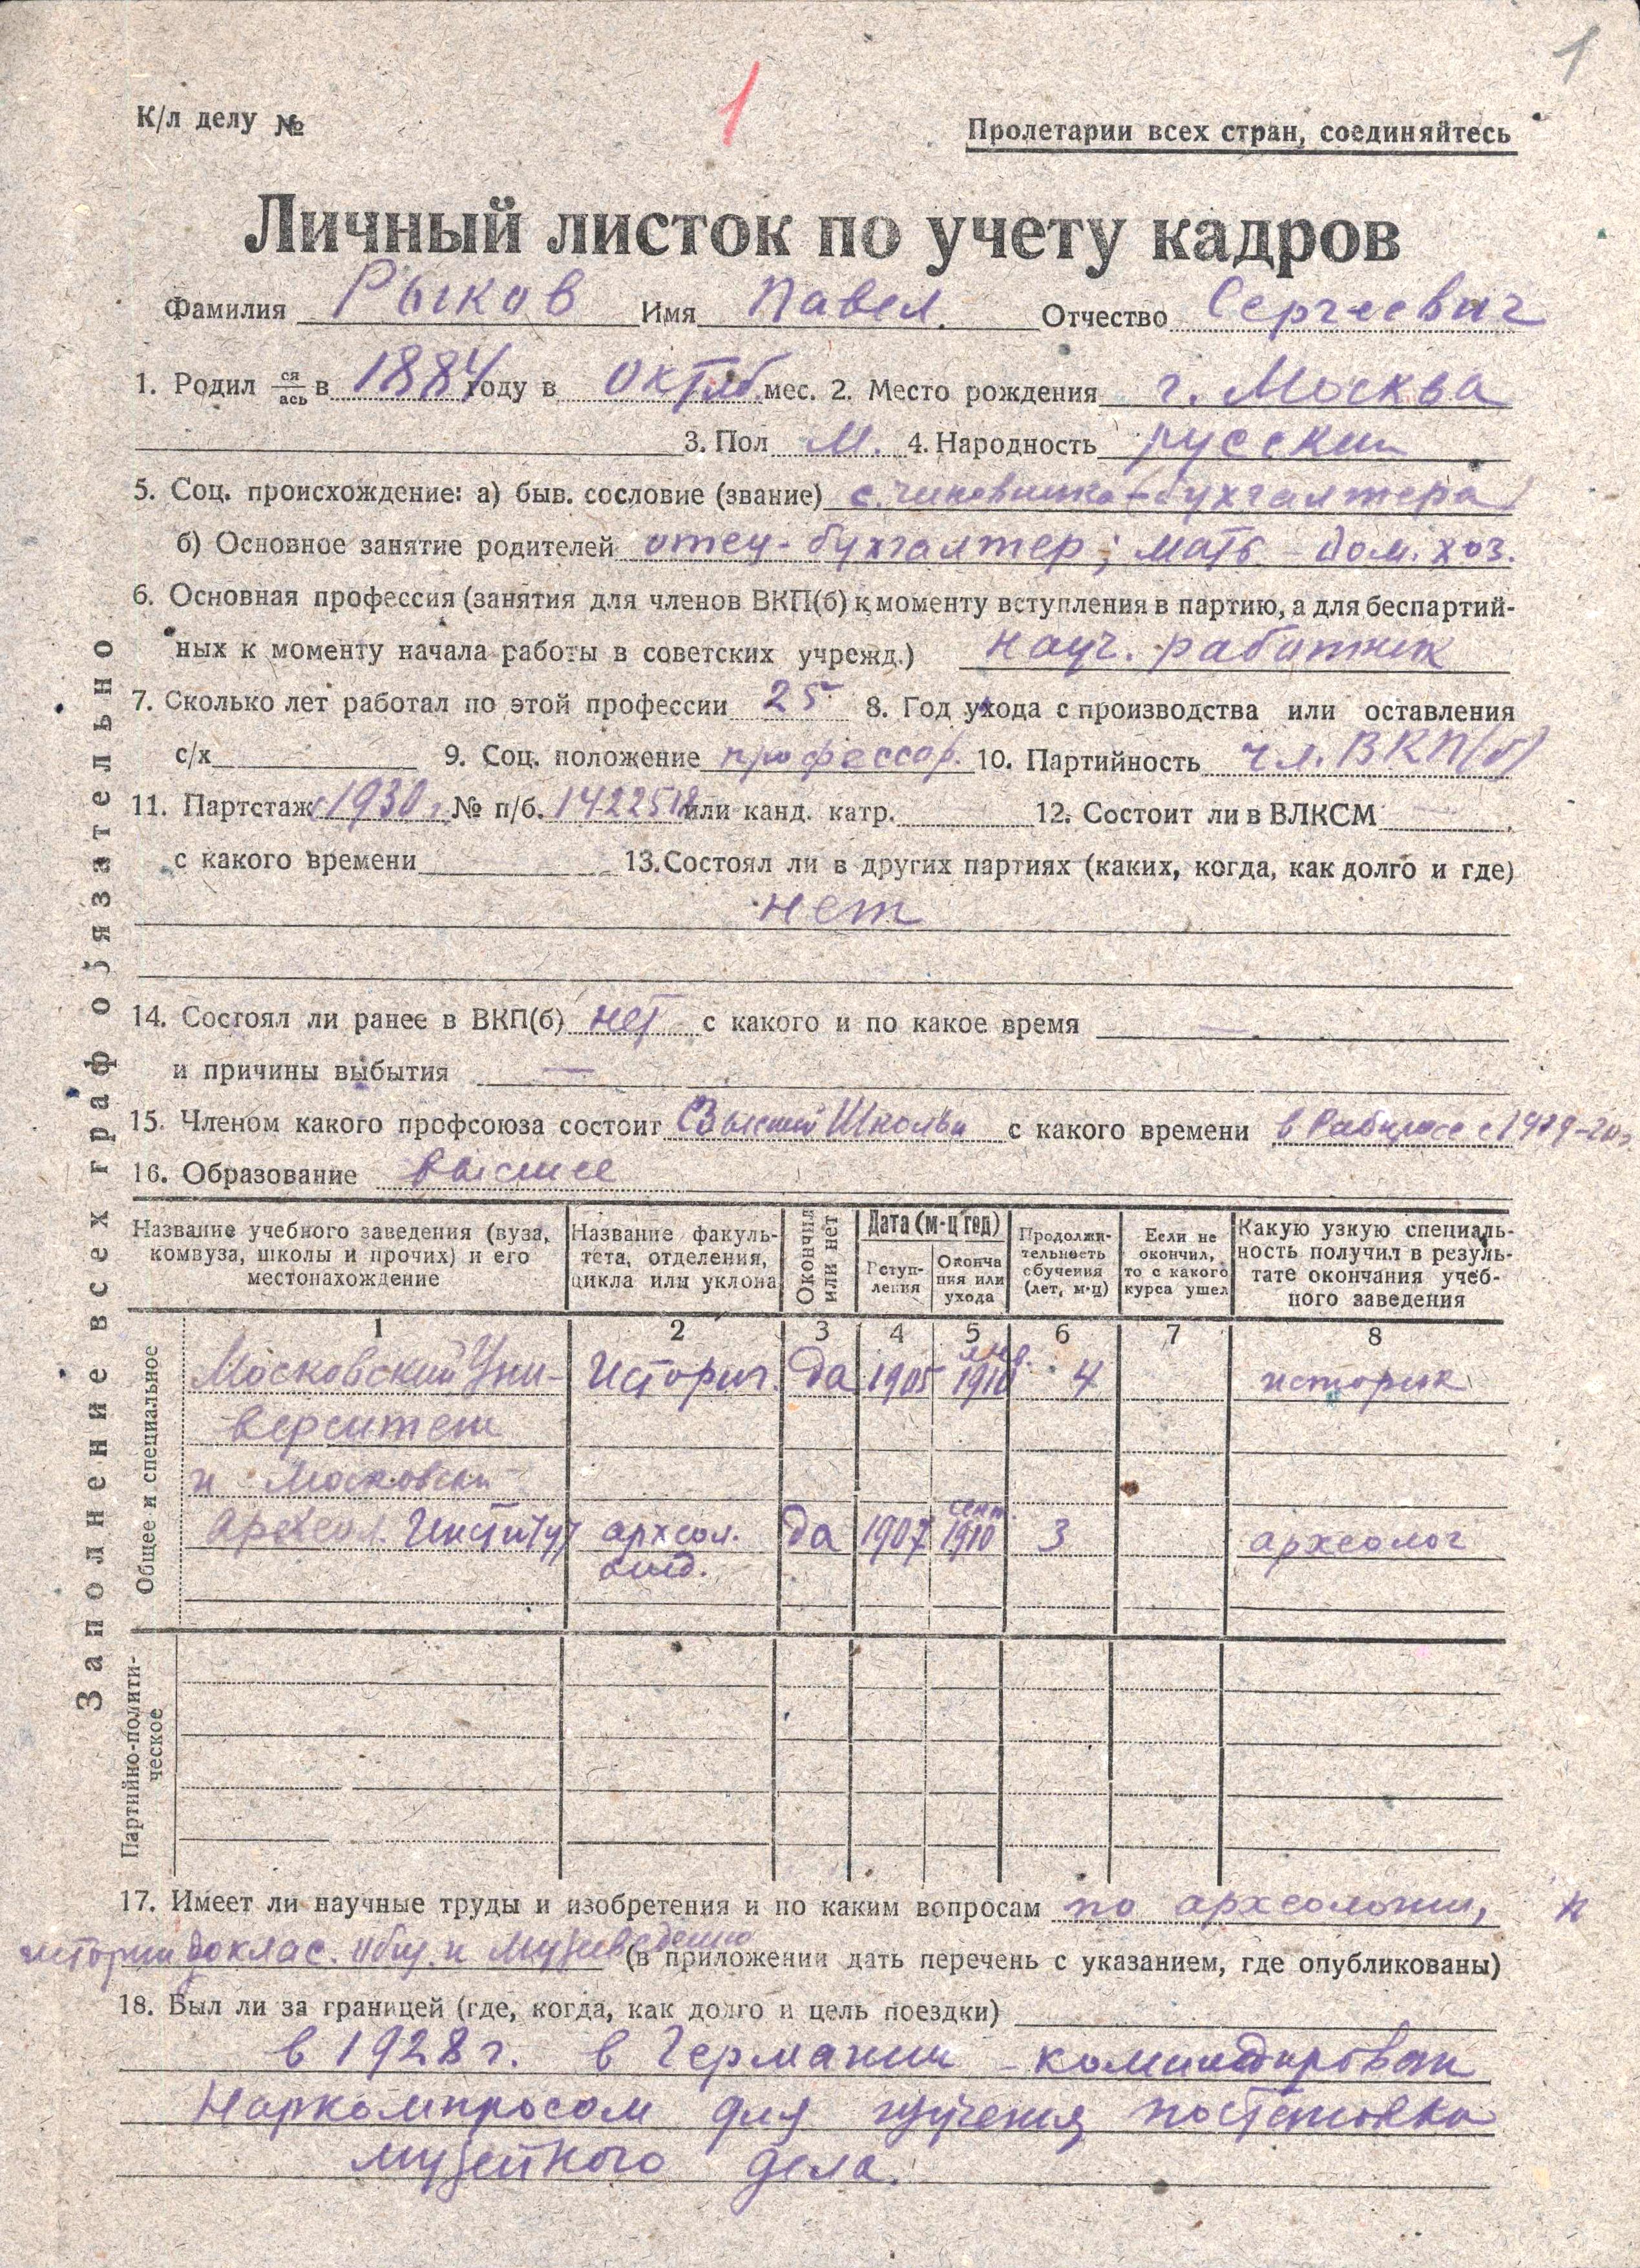 1
1
К/л делу №
Пролетарии всех стран, соединяйтесь
Личный листок по учету кадров
Фамилия Рыков Имя Павел Отчество Сергеевич
1. Родил ся/ась в 1884 году в октяб. мес. 2. Место рождения г. Москва
3. Пол м. 4. Народность русский
5. Соц. происхождение: а) быв. сословие (звание) с. чиновника-бухгалтера
б) Основное занятие родителей отец-бухгалтер; мать дом. хоз.
6. Основная профессия (занятия для членов ВКП(б) к моменту вступления в партию, а для беспартий-
ных к моменту начала работы в советских учрежд.) науч. работник
7. Сколько лет работал по этой профессии 25 8. Год ухода с производства или оставления
с/х 9. Соц. положение профессор. 10. Партийность чл. ВКП(б)
11. Партстаж с 1930 г. № п/б. 1422518 или канд. катр. 12. Состоит ли в ВЛКСМ —
с какого времени 13. Состоял ли в других партиях (каких, когда, как долго и где)
нет
14. Состоял ли ранее в ВКП(б) нет с какого и по какое время —
и причины выбытия —
15. Членом какого профсоюза состоит Высшей Школы с какого времени в Рабпросе с 1919-20 г.
16. Образование высшее
Название учебного заведения (вуза, комвуза, школы и прочих) и его местонахождение
Название факуль-тета, отделения, цикла или уклона
Окончил или нет
Дата (м-ц год)
Вступ-ления
Оконча ния или ухода
Продолжи-тельность обучения (лет, м-ц)
Если не окончил, то с какого курса ушел
Какую узкую специаль-ность получил в резуль-тате окончания учеб-ного заведения
1 2 3 4 5 6 7 8
Московский Уни- Историч. да 1905 1910 4 историк
верситет
и Московский
Археол. Институт археол. да 1907 сент. 1910 3 археолог
отд.
Общее и специальное
Партийно-полити-ческое
Заполнение всех граф обязательно
17. Имеет ли научные труды и изобретения и по каким вопросам по археологии, и
истории доклас. общ. и Музееведению (в приложении дать перечень с указанием, где опубликованы)
18. Был ли за границей (где, когда, как долго и цель поездки)
в 1928 г. в Германии - командирован
Наркомпросом для изучения постановки
музейного дела.